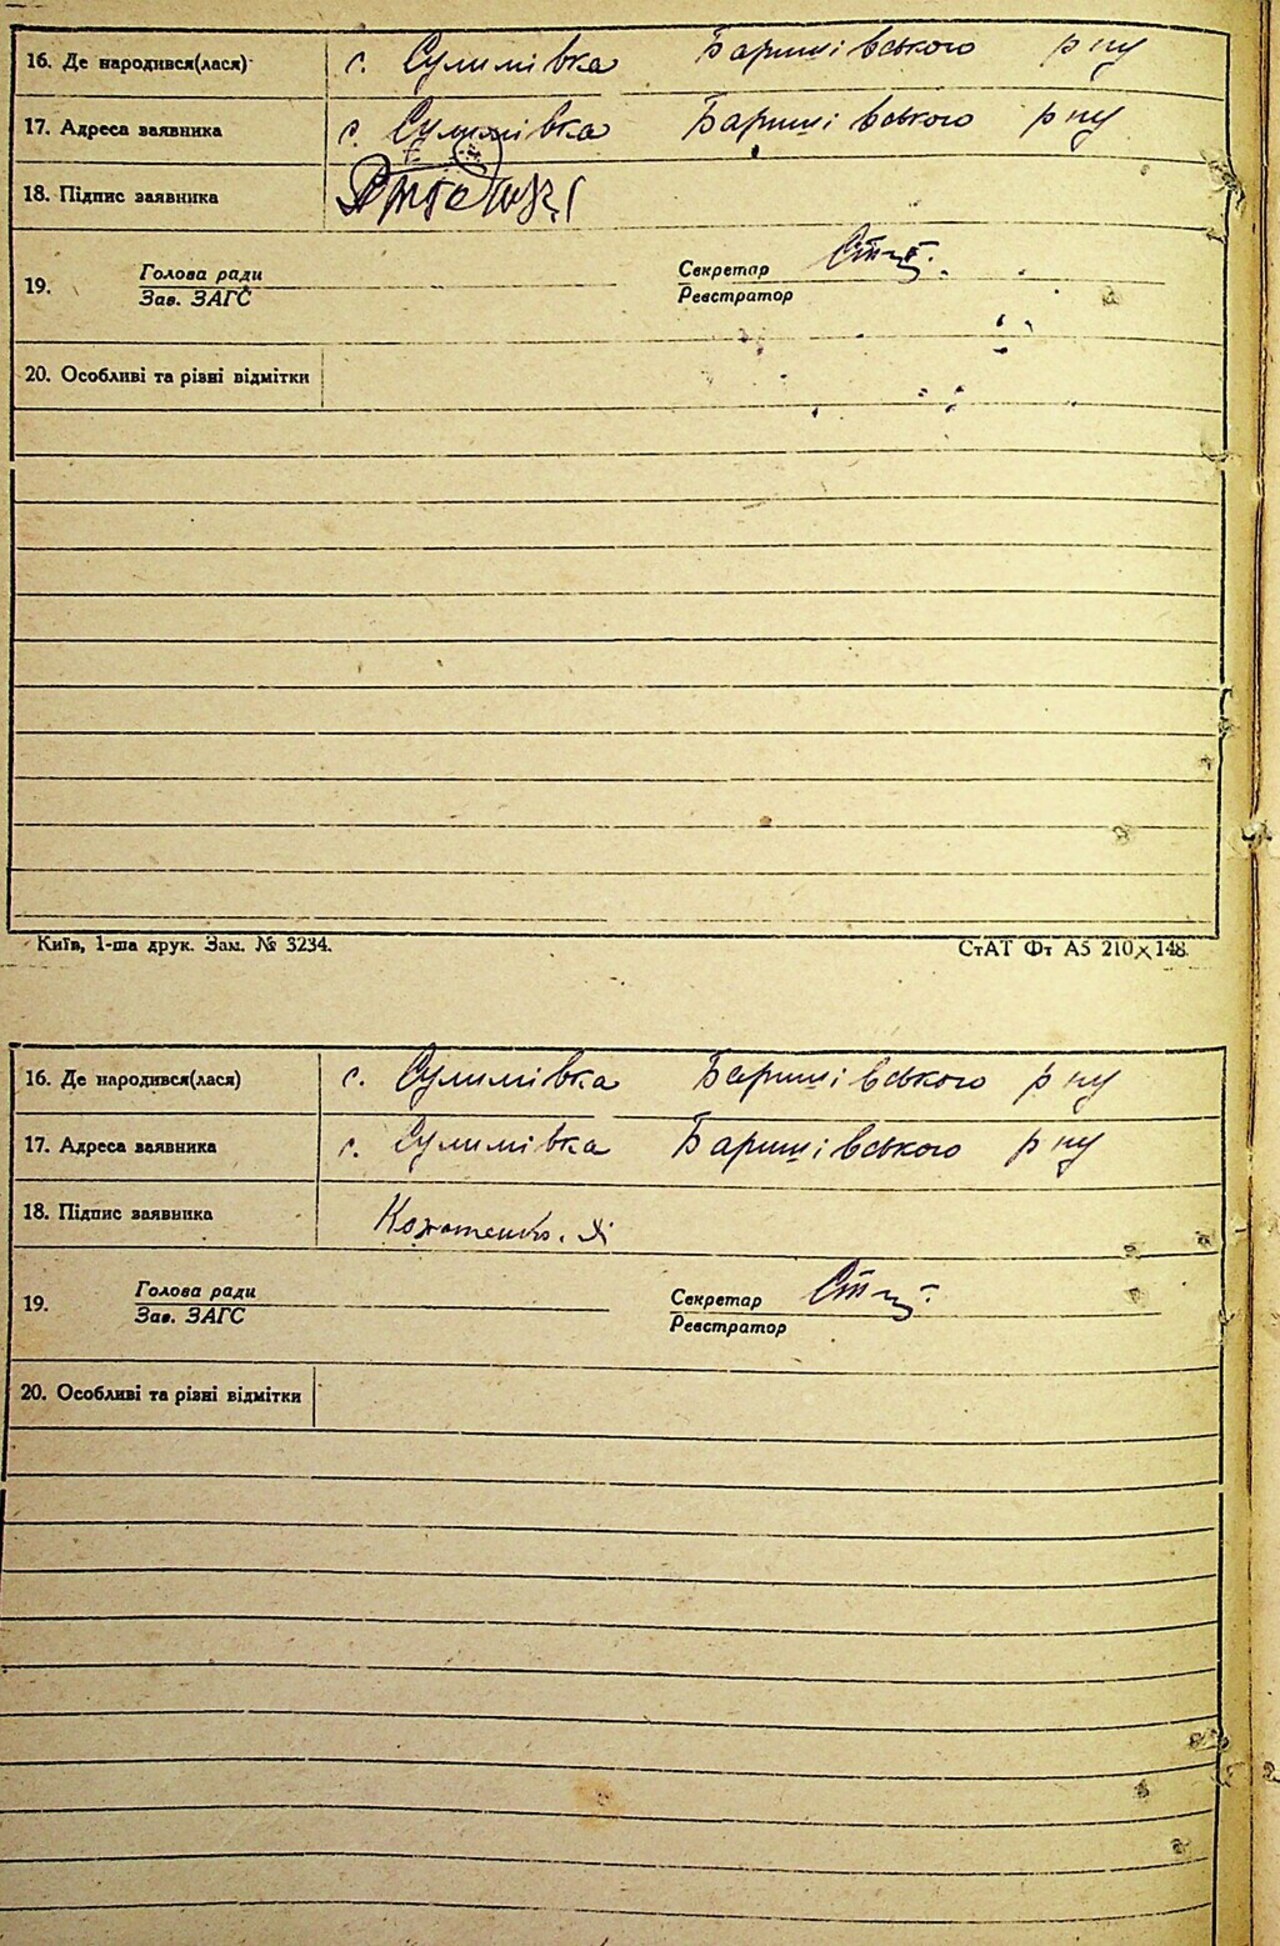 16. Де народився(лася) с. Сулимівка Баришівського р ну
17. Адреса заявника с. Сулимівка Баришівського р ну
18. Підпис заявника
19. Голова ради Секретар
Зав. ЗАГС Реєстратор
20. Особливі та різні відмітки
Київ, 1-ша друк. Зам. № 3234. СтАТ Фт А5 210×148.
16. Де народився(лася) с. Сулимівка Баришівського р ну
17. Адреса заявника с. Сулимівка Баришівського р ну
18. Підпис заявника
19. Голова ради Секретар
Зав. ЗАГС Реєстратор
20. Особливі та різні відмітки